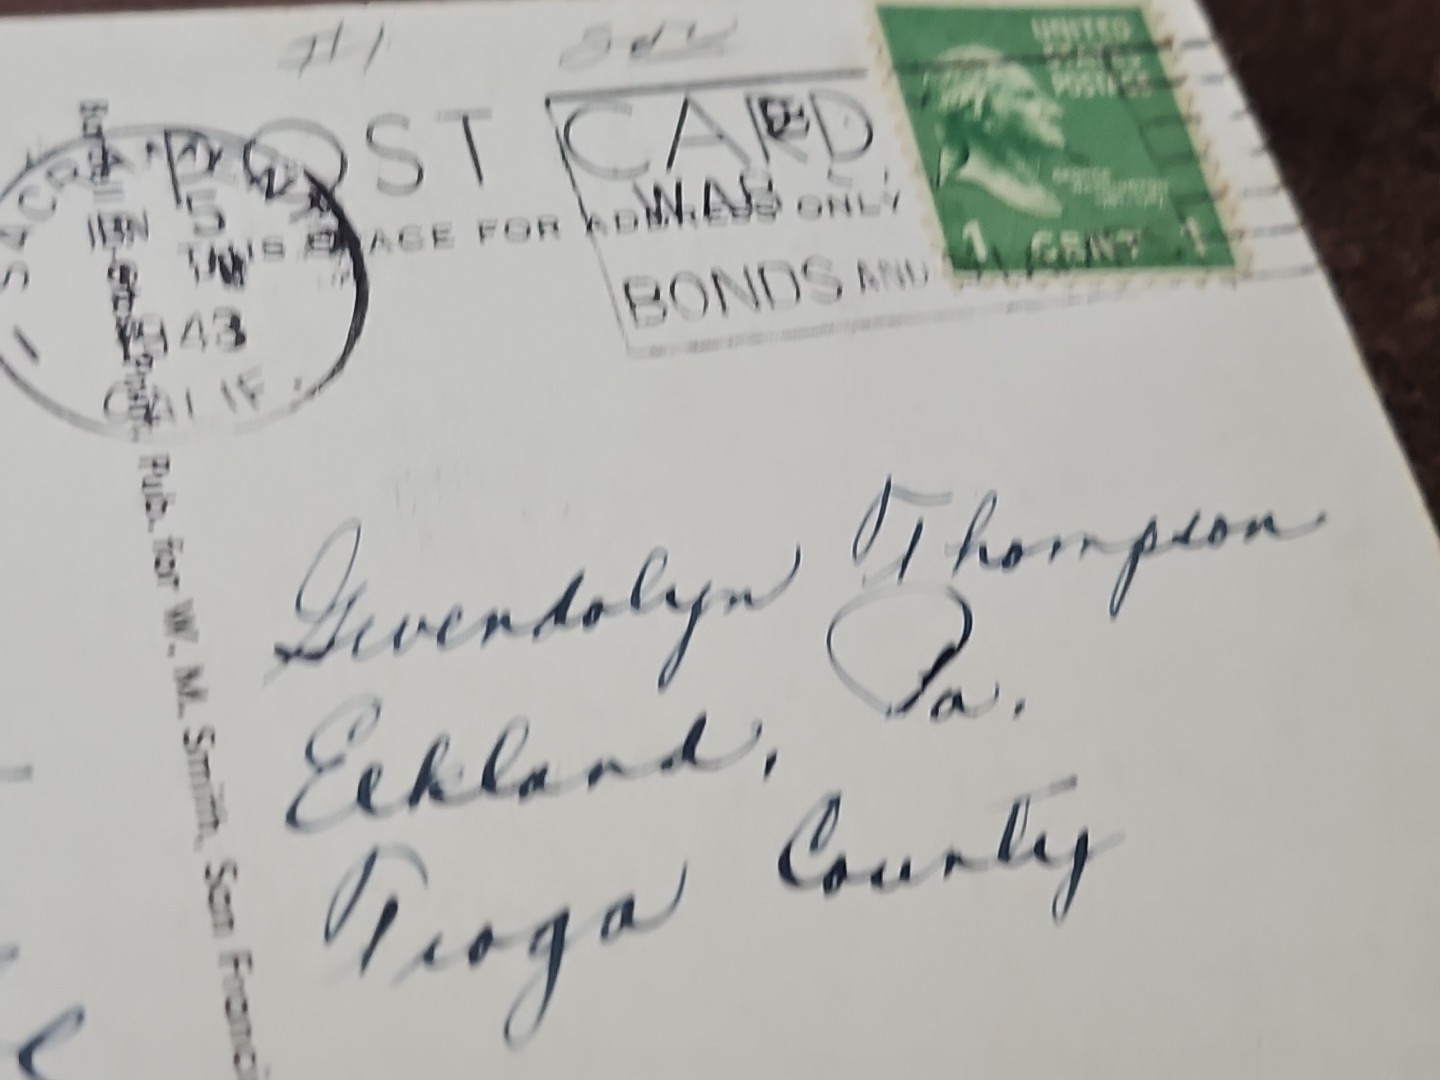 #1
POST CARD
THIS SPACE FOR ADDRESS ONLY
UNITED
STATES
POSTAGE
1 CENT 1
SACRAMENTO
1943
CALIF.
WAR
BONDS AND
Pub. for W. M. Smith, San Franci
Gwendolyn Thompson
Elkland, Pa.
Tioga County